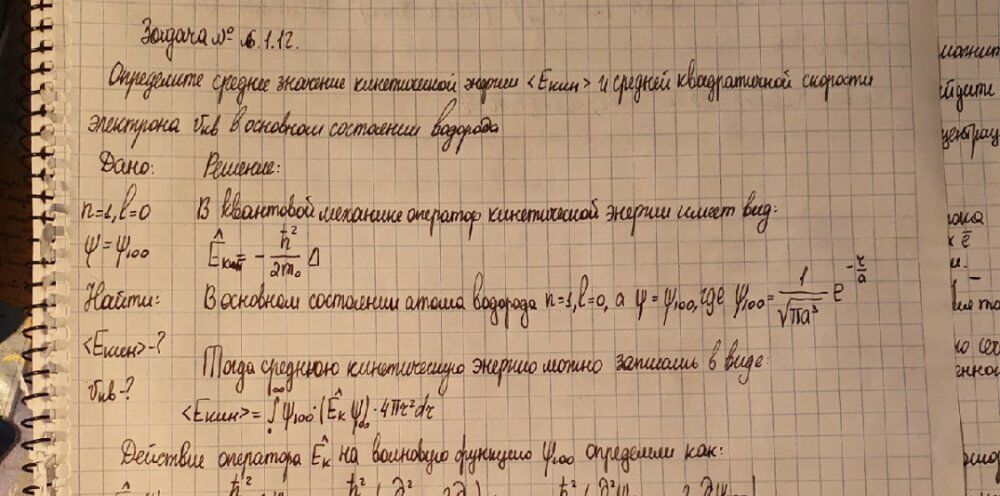 Задача № 6.1.12.
Определите среднее значение кинетической энергии <Eкин> и средней квадратичной скорости
электрона υкв в основном состоянии водорода
Дано: Решение:
n=1, l=0 В квантовой механике оператор кинетической энергии имеет вид:
ψ=ψ₁₀₀ Ê кин = - ħ²/2m₀ Δ
Найти: В основном состоянии атома водорода n=1, l=0, а ψ=ψ₁₀₀, где ψ₁₀₀= 1/√(πa³) e^(-r/a)
<Eкин>-? Тогда среднюю кинетическую энергию можно записать в виде:
υкв-?
<Eкин> = ∫₀^∞ ψ₁₀₀·(Êк ψ₁₀₀)·4πr²dr
Действие оператора Êк на волновую функцию ψ₁₀₀ определим как: